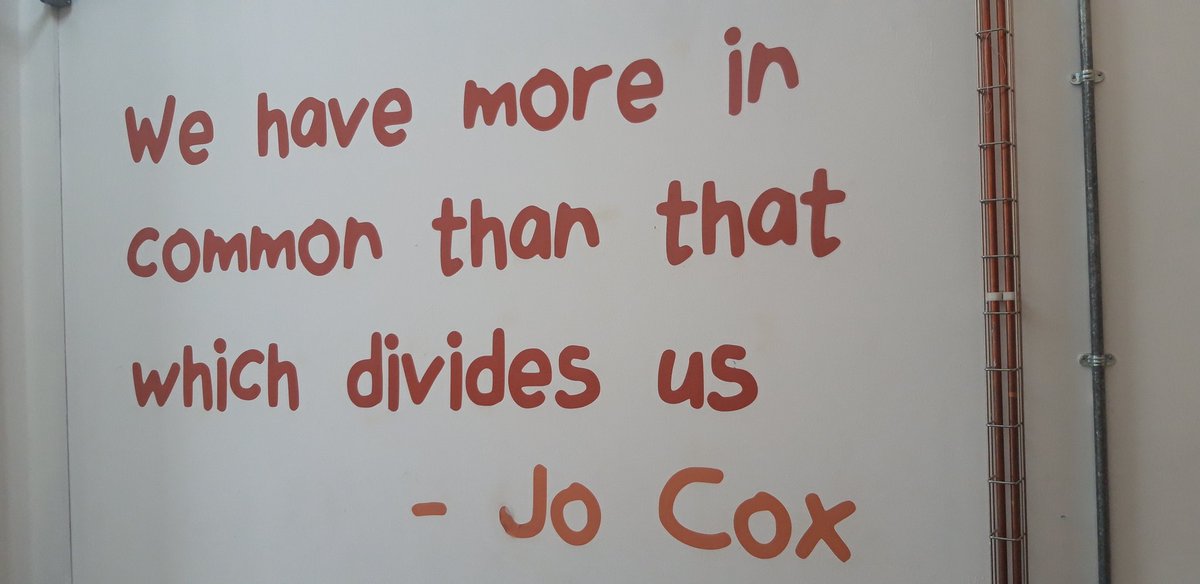 We have more in
common than that
which divides us
- Jo Cox